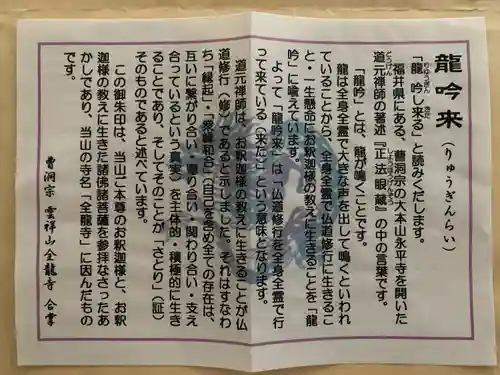 龍吟来（りゅうぎんらい）
「龍吟し来る」と読みくだします。
福井県にある、曹洞宗の大本山永平寺を開いた
道元禅師の著述『正法眼蔵』の中の言葉です。
「龍吟」とは、龍が鳴くことです。
龍は全身全霊で大きな声を出して鳴くといわれ
ていることから、全身全霊で仏道修行に生きるこ
と・一生懸命にお釈迦様の教えに生きることを「龍
吟」に喩えています。
よって「龍吟来」は「仏道修行を全身全霊で行
って来ている（来た）」という意味となります。
道元禅師は、お釈迦様の教えに生きることが仏
道修行（修）であると示しました。それはすなわ
ち「縁起」・「衆縁和合」（自己を含め全ての存在は、
互いに繋がり合い・寄り合い・関わり合い・支え
合っているという真実）を主体的・積極的に生き
ることであり、そしてそのことが「さとり」（証）
そのものであると述べています。
この御朱印は、当山ご本尊のお釈迦様と、お釈
迦様の教えに生きた諸佛諸菩薩を参拝なさったあ
かしであり、当山の寺名「全龍寺」に因んだもの
です。
曹洞宗 雲祥山全龍寺 合掌